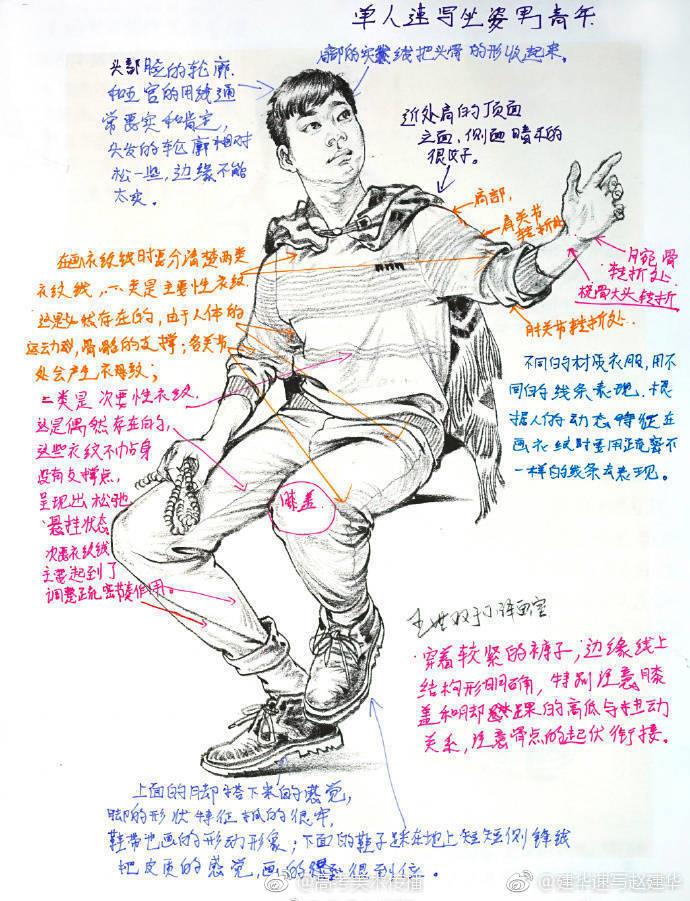 单人速写坐姿男青年
头部脸的轮廓
和五官的用线通
常要实和肯定,
头发的轮廓相对
松一些,边缘不能
太实。
局部的实紧线把头骨的形收起来。
近处肩的顶面
立面,侧面暗示的
很好。
肩部,
肩关节
转折处
腕骨
转折处
桡骨大头转折
肘关节转折处
在画衣纹线时要分清楚两类
衣纹线,一类是主要性衣纹
这是必然存在的,由于人体的
运动到,骨骼的支撑;各关节
处会产生衣褶纹;
二类是次要性衣纹,
这是偶然存在的,
这些衣纹不贴身
没有支撑点,
呈现出松弛
悬挂状态
次要衣纹线
主要起到了
调整疏密节奏作用。
不同的材质衣服,用不
同的线条表现.根
据人的动态特征在
画衣纹时要用疏密不
一样的线条去表现。
膝盖
画室
穿着较紧的裤子,边缘线上
结构形明确,特别注意膝
盖和脚踝的高低与扭动
关系,注意骨点的起伏衔接。
上面的脚搭下来的感觉,
脚的形状特征抓的很牢,
鞋带也画的形动形象;下面的鞋子踩在地上短短侧锋线
把皮质的感觉,画的很到位。
@高考美术传播
@建华速写赵建华